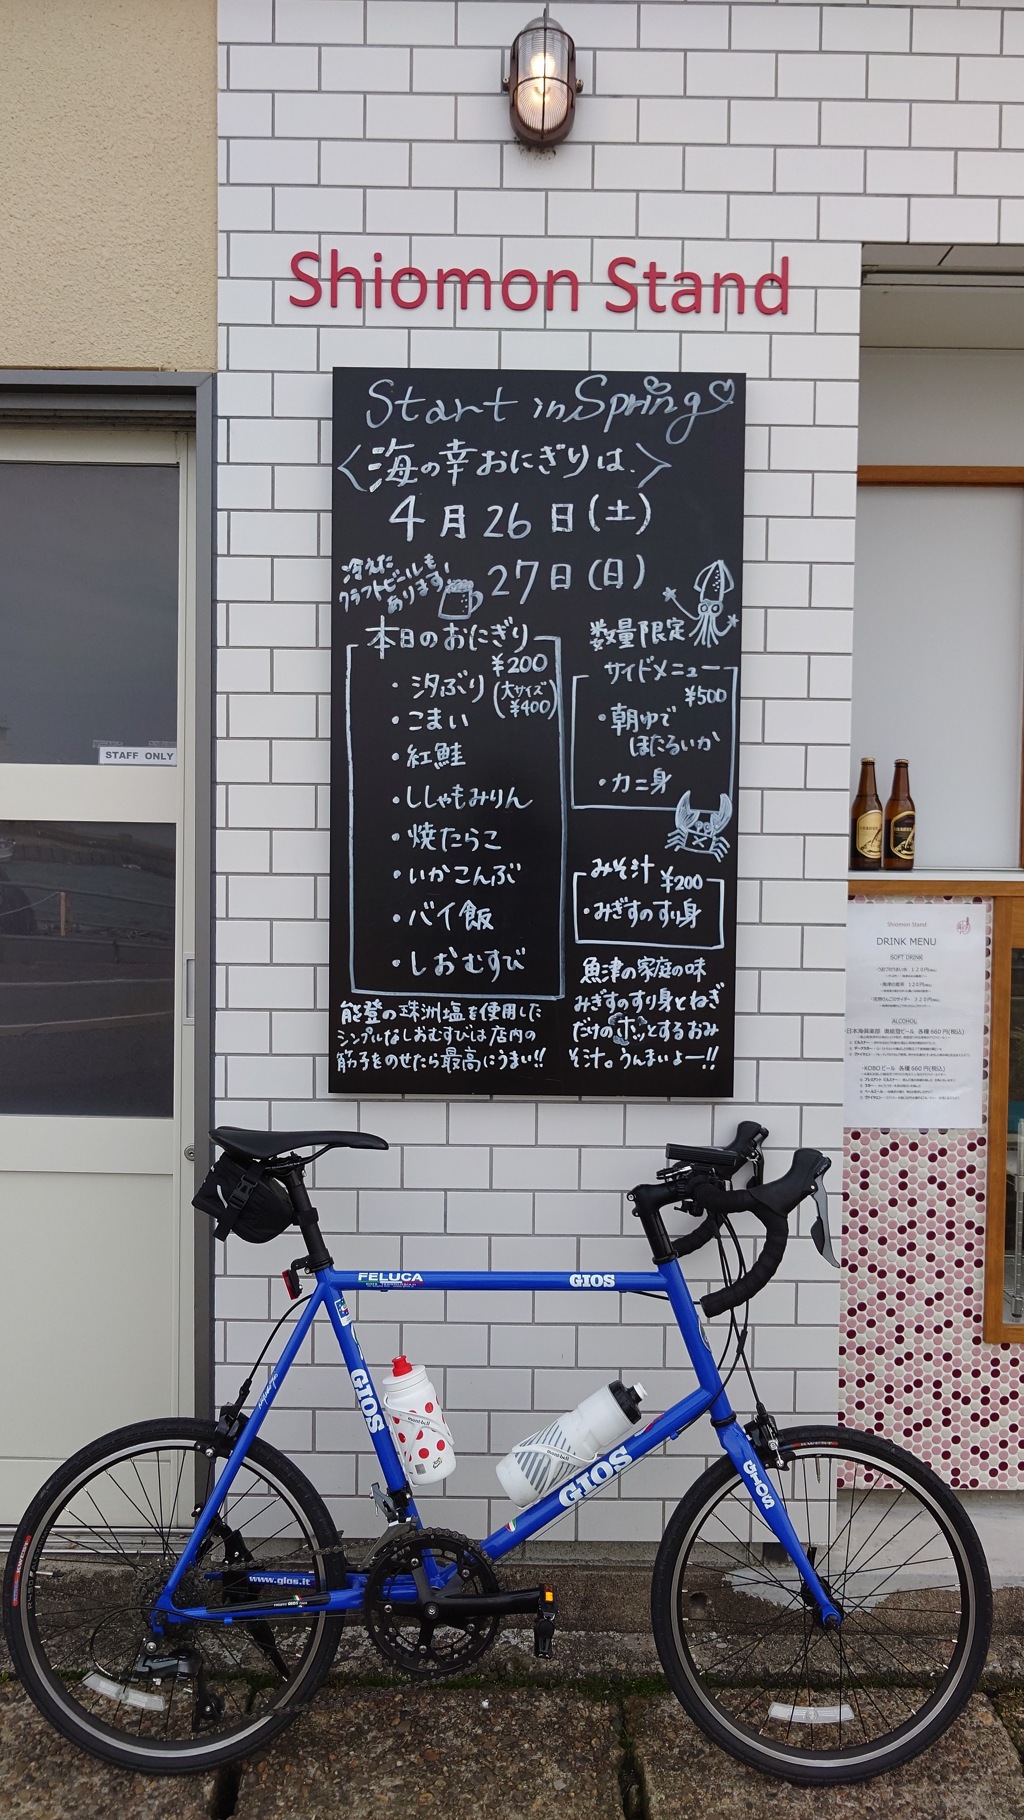 Shiomon Stand
Start in Spring
〈海の幸おにぎりは、〉
4月26日(土)
27日(日)
冷えた
クラフトビールも
あります!
本日のおにぎり
¥200
(大サイズ
¥400)
・汐ぶり
・こまい
・紅鮭
・ししゃもみりん
・焼たらこ
・いかこんぶ
・バイ飯
・しおむすび
能登の珠洲塩を使用した
シンプルなしおむすびは店内の
筋子をのせたら最高にうまい!!
数量限定
サイドメニュー
¥500
・朝ゆで
ほたるいか
・カニ身
みそ汁
¥200
・みぎすのすり身
魚津の家庭の味
みぎすのすり身とねぎ
だけのホッとするおみ
そ汁。うんまいよー!!
STAFF ONLY
Shiomon Stand
DRINK MENU
SOFT DRINK
ALCOHOL
日本海倶楽部 奥能登ビール 各種 660円(税込)
KOBOビール 各種 660円(税込)
FELUCA
GIOS
GIOS
GIOS
GIOS
mont-bell
mont-bell
www.gios.it